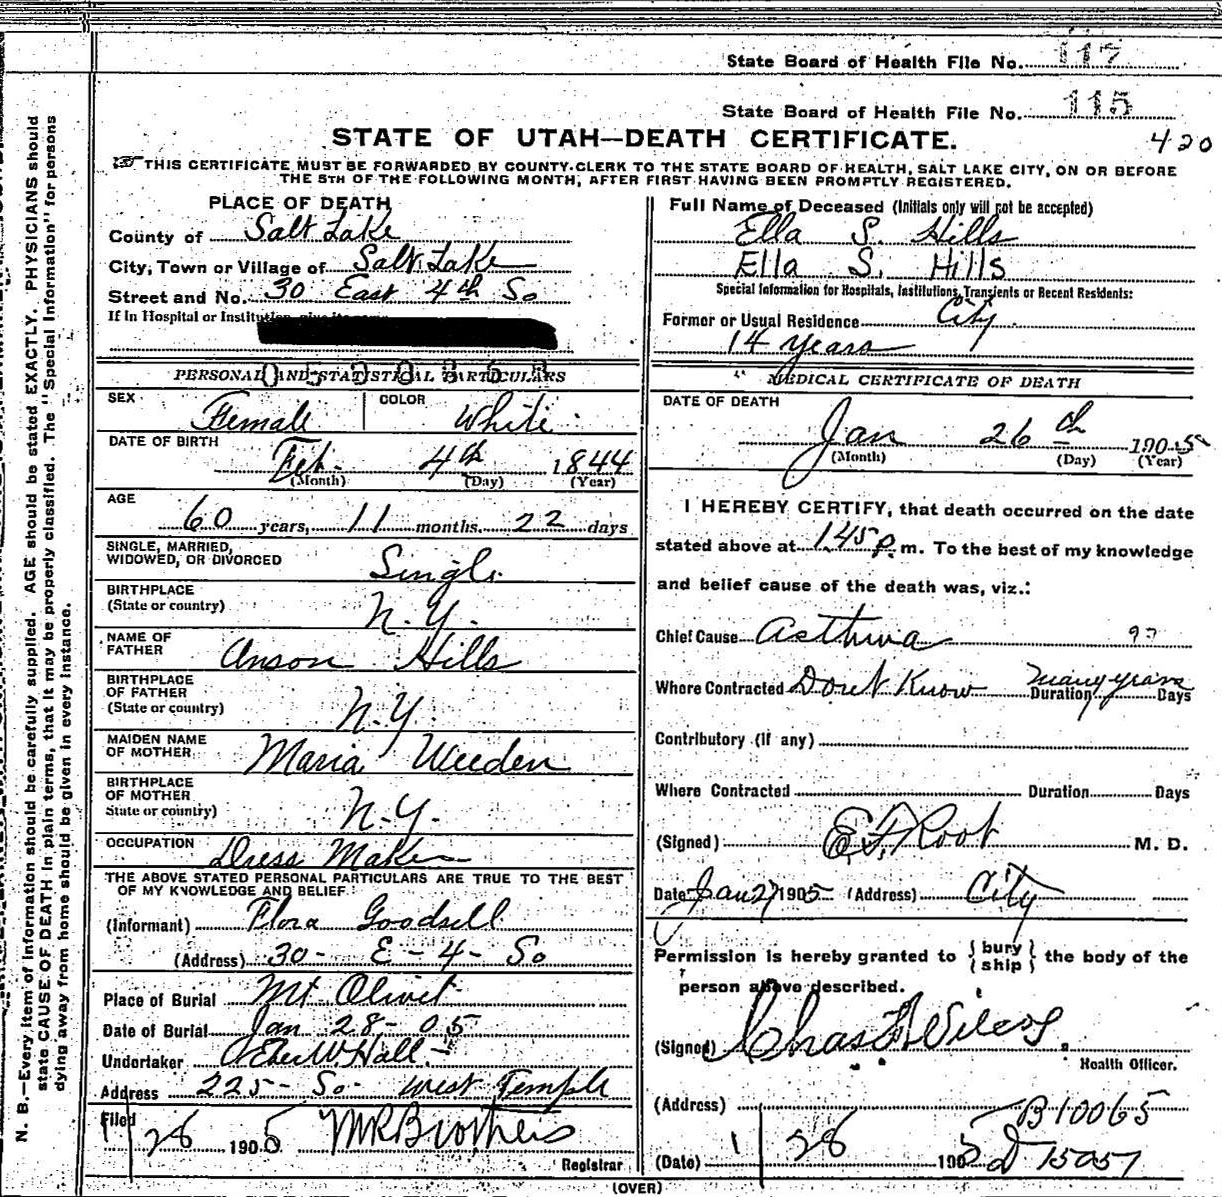 State Board of Health File No. 117
State Board of Health File No. 115
STATE OF UTAH—DEATH CERTIFICATE.
420
THIS CERTIFICATE MUST BE FORWARDED BY COUNTY CLERK TO THE STATE BOARD OF HEALTH, SALT LAKE CITY, ON OR BEFORE
THE 5TH OF THE FOLLOWING MONTH, AFTER FIRST HAVING BEEN PROMPTLY REGISTERED.
PLACE OF DEATH
County of Salt Lake
City, Town or Village of Salt Lake
Street and No. 30 East 4th So
If in Hospital or Institution, give its name
PERSONAL AND STATISTICAL PARTICULARS
SEX Female COLOR White
DATE OF BIRTH
Feb 4th 1844
(Month) (Day) (Year)
AGE
60 years, 11 months. 22 days
SINGLE, MARRIED,
WIDOWED, OR DIVORCED Single
BIRTHPLACE
(State or country) N.Y.
NAME OF
FATHER Anson Hills
BIRTHPLACE
OF FATHER
(State or country) N.Y.
MAIDEN NAME
OF MOTHER Maria Weeden
BIRTHPLACE
OF MOTHER
State or country) N.Y.
OCCUPATION Dress Maker
THE ABOVE STATED PERSONAL PARTICULARS ARE TRUE TO THE BEST
OF MY KNOWLEDGE AND BELIEF
(Informant) Flora Goodsell
(Address) 30 - E - 4 - So
Place of Burial Mt Olivet
Date of Burial Jan 28 - 05
Undertaker Eber W Hall
Address 225 - So - West Temple
Filed
1 28 1905 M R Brothers
Registrar
Full Name of Deceased (Initials only will not be accepted)
Ella S. Hills
Ella S. Hills
Special Information for Hospitals, Institutions, Transients or Recent Residents:
Former or Usual Residence City
14 years
MEDICAL CERTIFICATE OF DEATH
DATE OF DEATH
Jan 26th 1905
(Month) (Day) (Year)
I HEREBY CERTIFY, that death occurred on the date
stated above at 1.45 P. m. To the best of my knowledge
and belief cause of the death was, viz.:
Chief Cause Asthma
Where Contracted Dont Know Duration many years Days
Contributory (if any)
Where Contracted Duration Days
(Signed) E. F. Root M. D.
Date Jan 27 1905 (Address) City
Permission is hereby granted to {bury
ship} the body of the
person above described.
(Signed)
Health Officer.
(Address) B10065
(Date) 1 28 1905 D 15057
(OVER)
N. B.—Every item of information should be carefully supplied. AGE should be stated EXACTLY. PHYSICIANS should
state CAUSE OF DEATH in plain terms, that it may be properly classified. The "Special Information" for persons
dying away from home should be given in every instance.